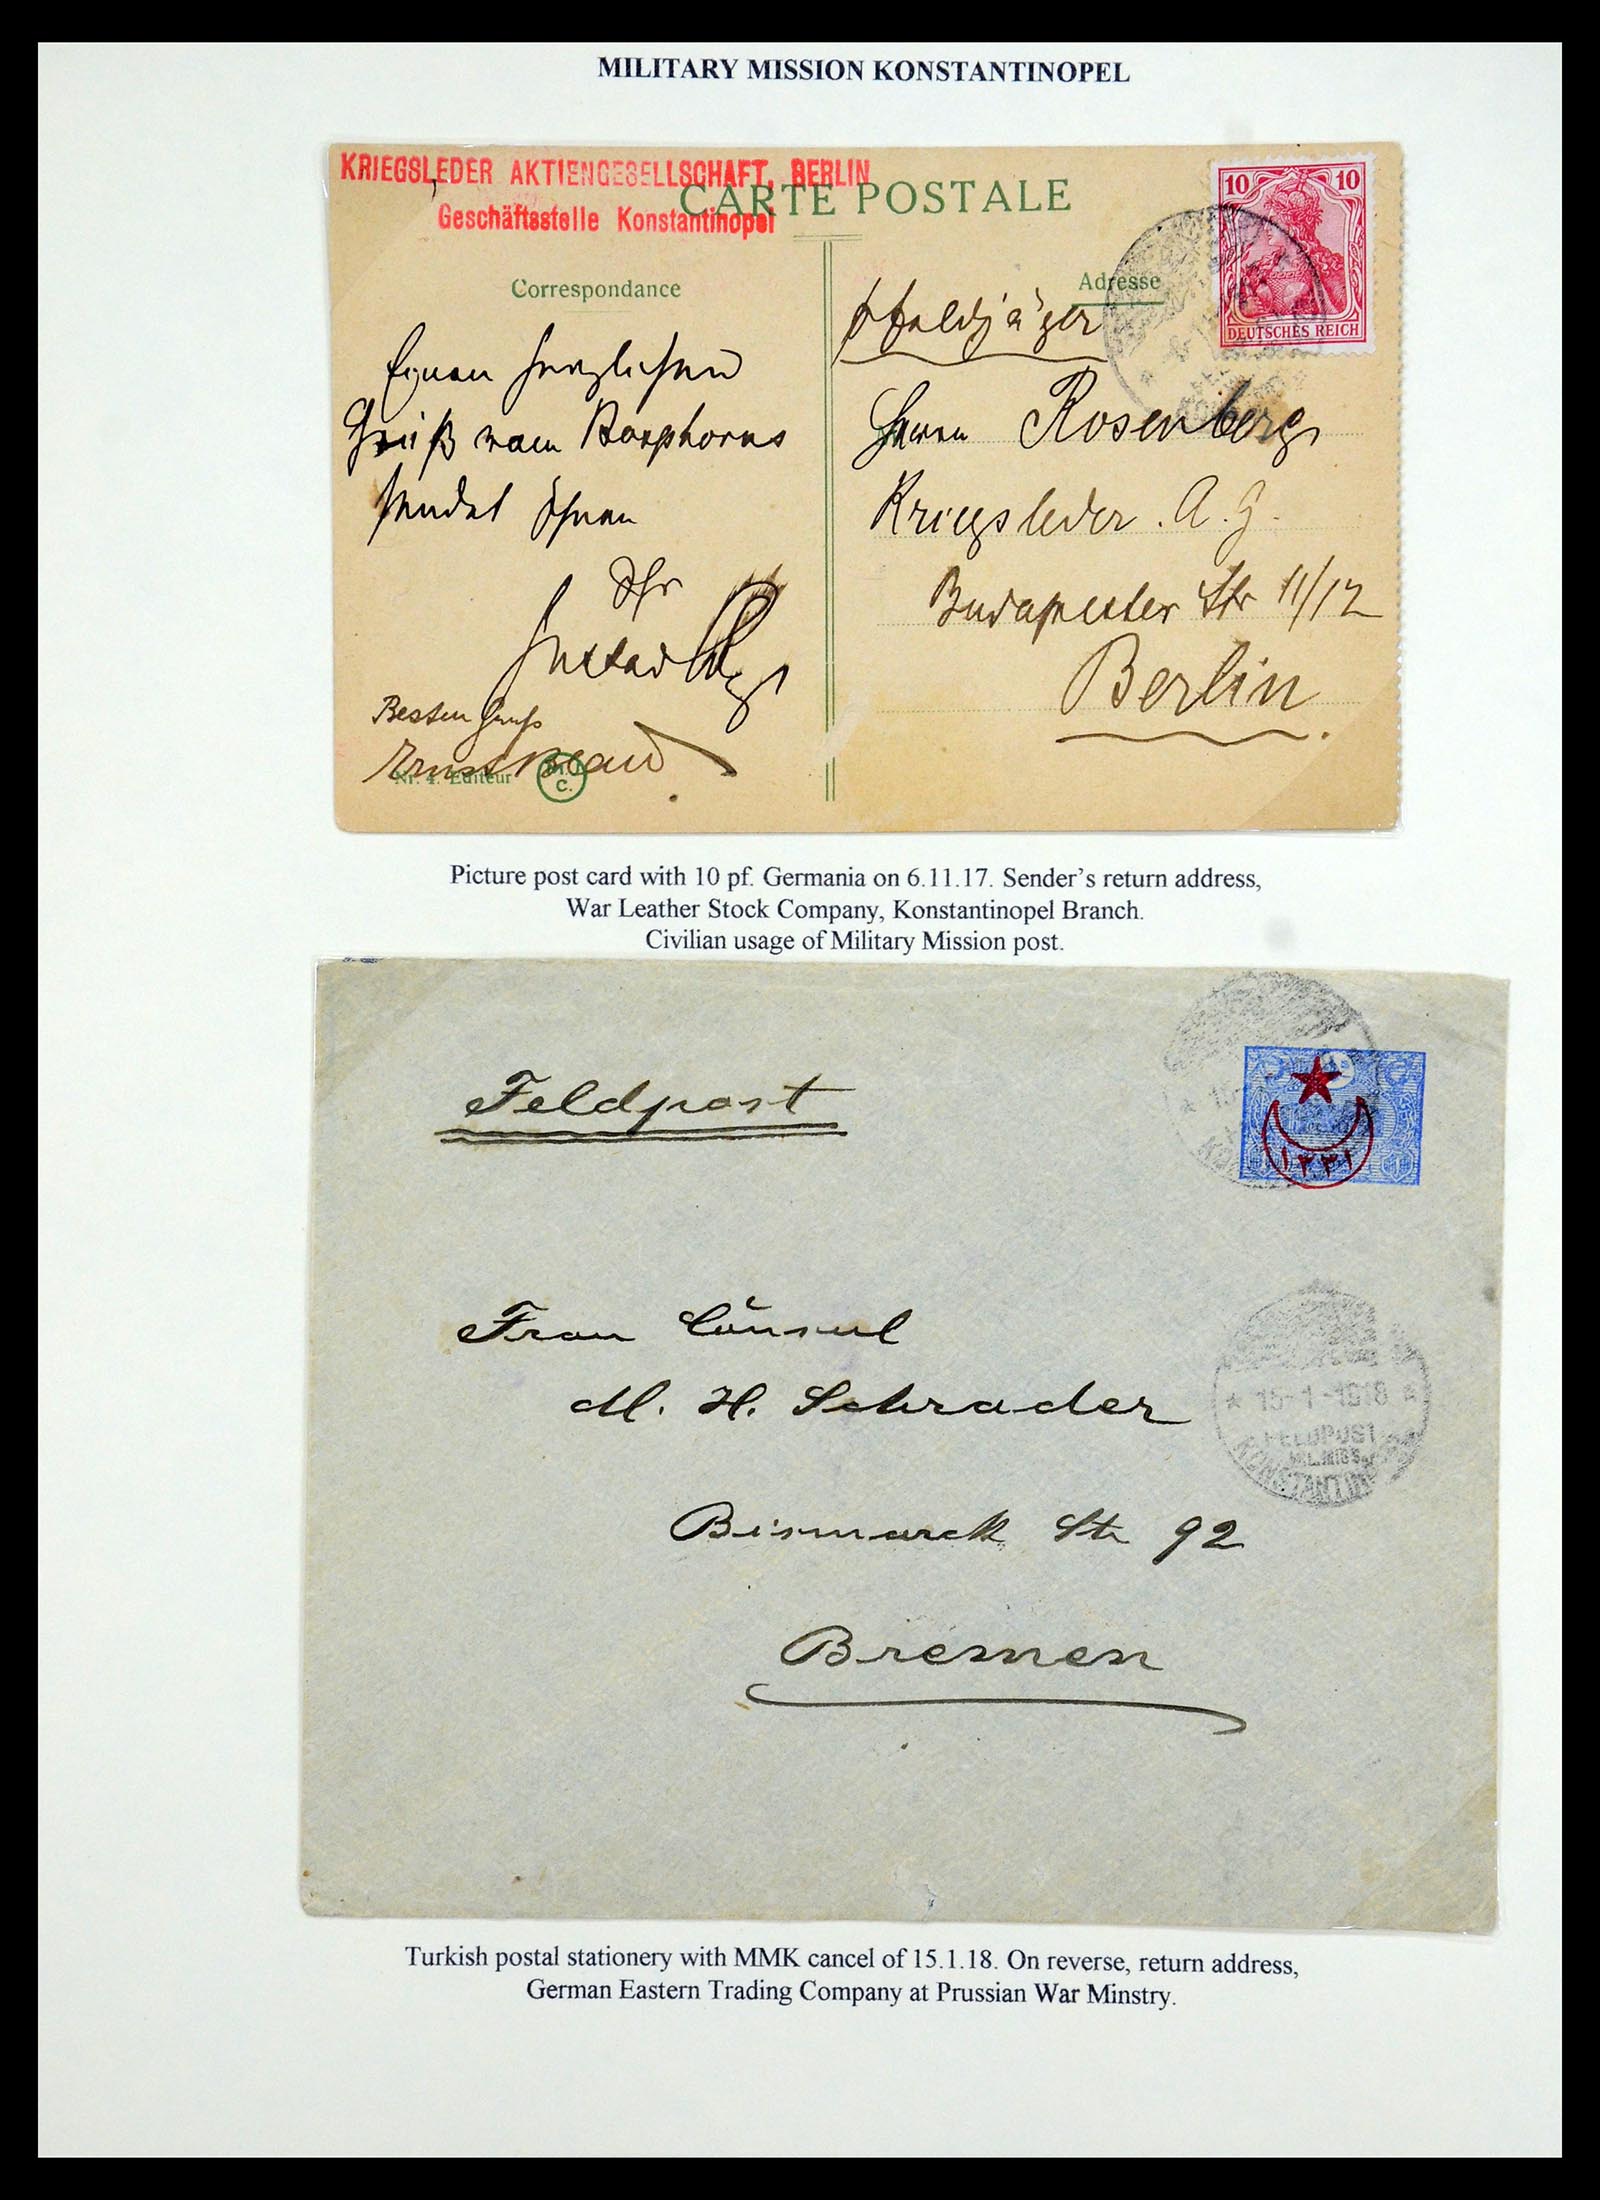 MILITARY MISSION KONSTANTINOPEL
KRIEGSLEDER AKTIENGESELLSCHAFT, BERLIN
Geschäftsstelle Konstantinopel
CARTE POSTALE
10 10
DEUTSCHES REICH
Correspondance
Adresse
Einen herzlichen
Gruß vom Bosphorus
sendet Ihnen
Ihr
Gustav
Besten Gruß
Ernst
Nr. 4. Editeur
C.
Feldjäger
Herrn Rosenberg
Kriegsleder. A. G.
Budapester Str 11/12
Berlin.
Picture post card with 10 pf. Germania on 6.11.17. Sender's return address,
War Leather Stock Company, Konstantinopel Branch.
Civilian usage of Military Mission post.
Feldpost
١٣٣١
Frau Cönsul
M. H. Schrader
Bismarck Str 92
Bremen
* 15-1-1918 *
FELDPOST
MIL.MISS.
KONSTANTIN
Turkish postal stationery with MMK cancel of 15.1.18. On reverse, return address,
German Eastern Trading Company at Prussian War Minstry.